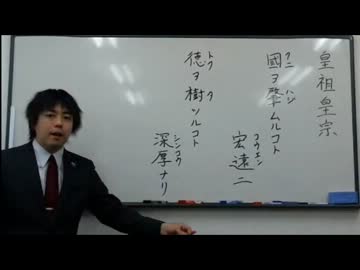 皇祖皇宗
クニ ハジ
國ヲ肇ムルコト
コウエン
宏遠ニ
トク タ
徳ヲ樹ツルコト
シンコウ
深厚ナリ